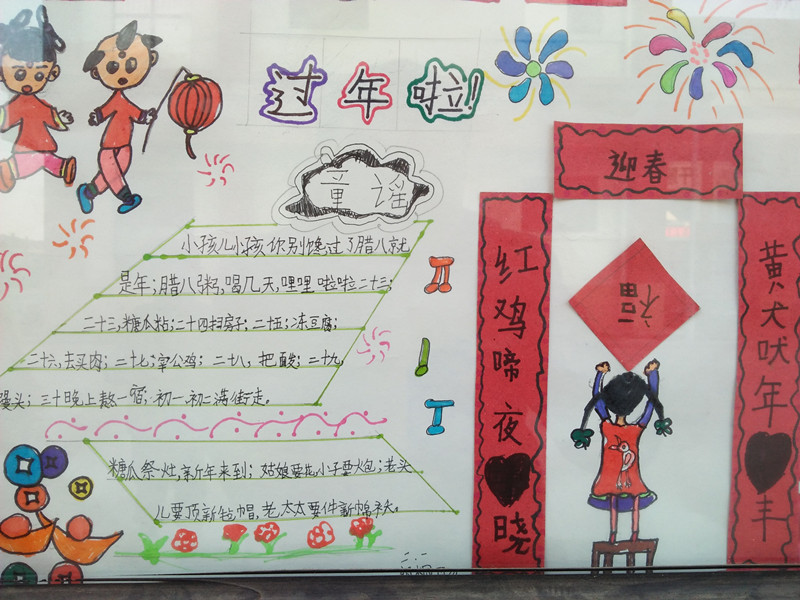 过年啦!
童谣
小孩儿小孩你别馋过了腊八就
是年;腊八粥,喝几天,哩哩啦啦二十三;
二十三,糖瓜粘;二十四扫房子;二十五;冻豆腐;
二十六,去买肉;二十七;宰公鸡;二十八,把面酸;二十九
馒头;三十晚上熬一宿;初一初二满街走。
糖瓜祭灶,新年来到;姑娘要花,小子要火炮;老头
儿要顶新毡帽,老太太要件新棉袄。
迎春
红鸡啼夜晓
黄犬吠年丰
福